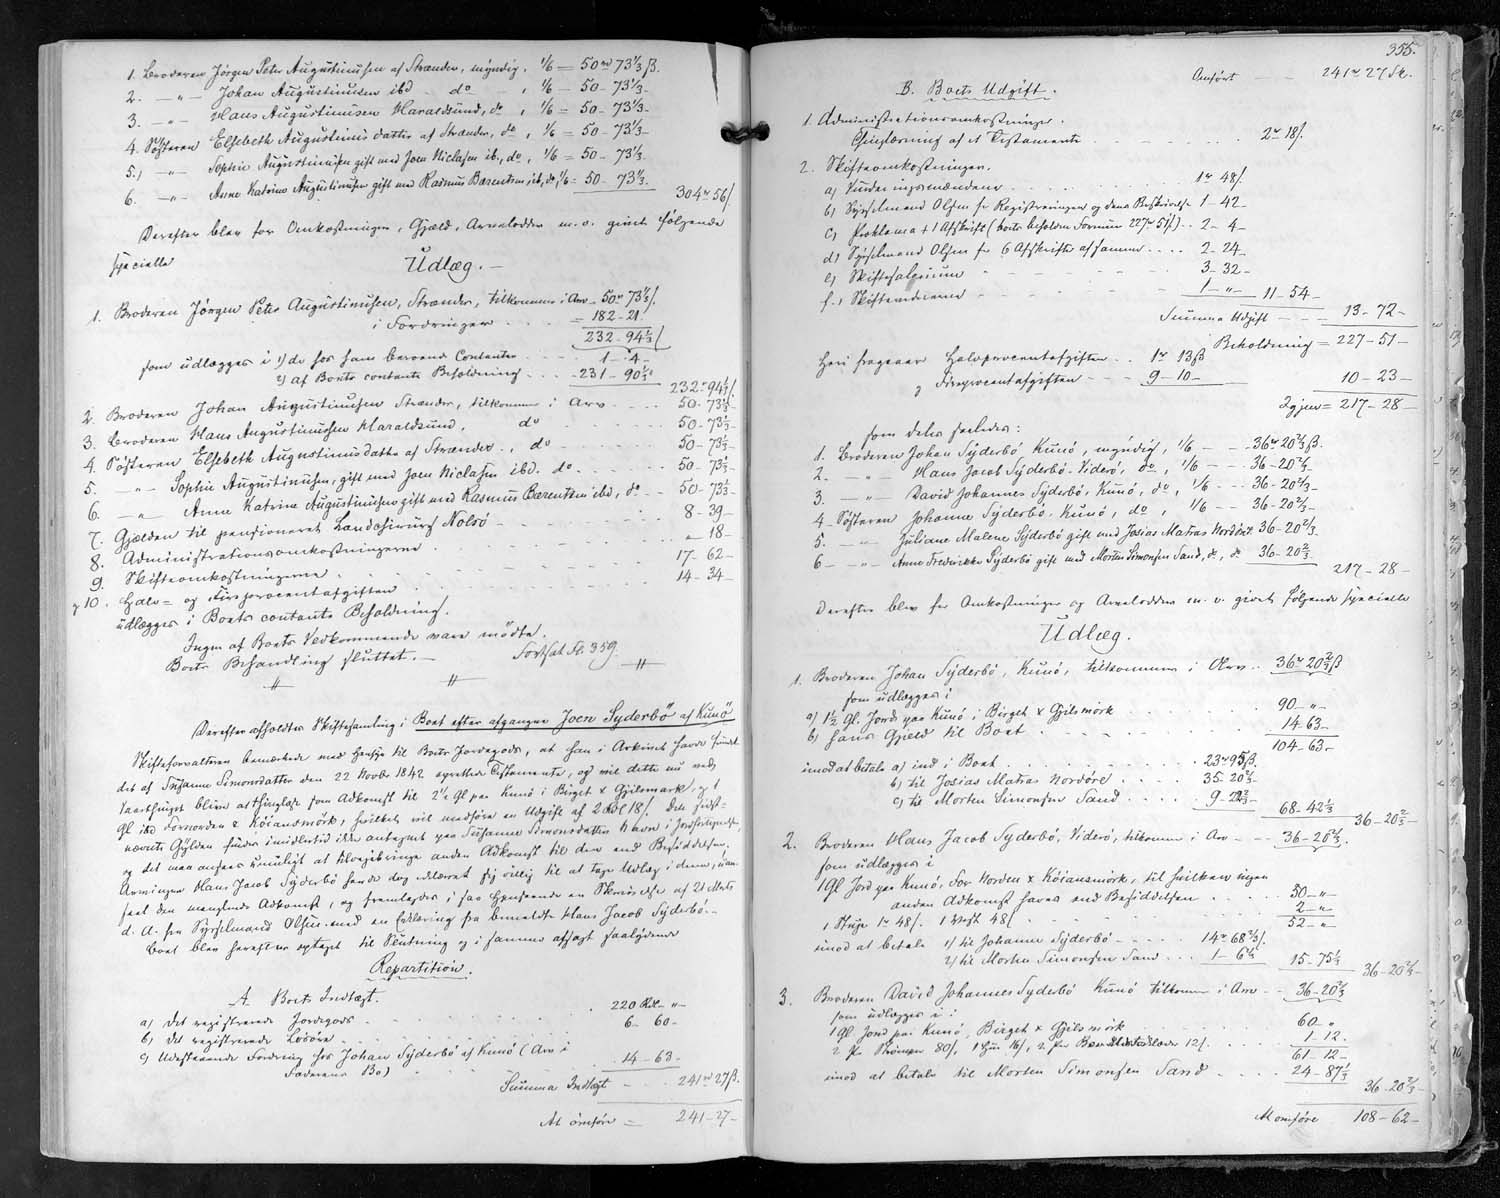 1. Broderen Jørgen Peter Augustinussen af Strænder, myndig, 1/6 = 50 rd 73 1/3 ß.
2. -"- Johan Augustinussen ibd. do , 1/6 - 50- 73 1/3 -
3. -"- Hans Augustinussen Haraldsund, do , 1/6 = 50- 73 1/3 -
4. Søsteren Elsebeth Augustinusdatter af Strænder, do , 1/6 = 50- 73 1/3 -
5.) -"- Sophie Augustinussen gift med Joen Niclasen ib., do , 1/6 = 50- 73 1/3 -
6. -"- Anne Katrine Augustinussen gift med Rasmus Bærentsen, ib, do, 1/6 = 50- 73 1/3 - 304 rd 56 ß
Derefter blev for Omkostninger, Gjæld, Arvelodder m. v. givet følgende
specielle
Udlæg. -
1. Broderen Jørgen Peter Augustinussen, Strænder, tilkommer i Arv - 50 rd 73 1/3 ß
i Fordringer . . . . = 182 - 21
232 - 94 1/3 ß
som udlægges i 1) de hos ham beroende Contanter . . . . 1 - 4 -
2) af Boets contante Beholdning . . . - 231 - 90 1/3 232 - 94 1/3 ß
2. Broderen Johan Augustinussen Strænder, tilkommer i Arv . . . . 50 - 73 1/3 -
3. Broderen Hans Augustinussen Haraldsund, do . . . . 50 - 73 1/3 -
4. Søsteren Elsebeth Augustinusdatter af Strænder , do . . . . 50 - 73 1/3 -
5. -"- Sophie Augustinussen, gift med Joen Niclasen ibd. do . . . . 50 - 73 1/3 -
6. -"- Anne Katrine Augustinussen gift med Rasmus Bærentsen ibd, do - - 50 - 73 1/3 -
7. Gjælden til pensioneret Landchirurg Nolsø - . . . . 8 - 39 -
8. Administrationsomkostningerne . . . . " - 18 -
9. Skifteomkostningerne . . . . 17 - 62 -
og 10. Halv- og Fireprocentafgiften . . . . 14 - 34 -
udlægges i Boets contante Beholdning.
Ingen af Boets Vedkommende vare mødte.
Boets Behandling sluttet. - Fortsat fl. 359.
Derefter afholdtes Skiftesamling i Boet efter afgangne Joen Syderbö af Kunö
Skifteforvalteren bemærkede med Hensyn til Boets Jordegods, at han i Arkivet havde fundet
det af Susanne Simonsdatter den 22 Novbr 1842 oprettede Testamente, og vil dette nu ved
Vaarthinget blive at thinglæse som Adkomst til 2 1/2 Gl paa Kunö i Birget & Gjilsmørk, og 1
Gl ibd Fornorden & Köiansmörk, hvilket vil medføre en Udgift af 2 Rdl 18 ß. Det sidst-
nævnte Gylden findes imidlertid ikke antegnet paa Susanne Simonsdatters Navn i Jordebogen,
og det maa ansees umuligt at tilveiebringe anden Adkomst til den end Besiddelsen.
Arvingen Hans Jacob Syderbö havde dog erklæret sig villig til at tage Udlæg i denne, uan-
seet den manglende Adkomst, og fremlagdes i saa Henseende en Skrivelse af 21 Marts
d. A. fra Sysselmand Olsen med en Erklæring fra bemeldte Hans Jacob Syderbö. -
Boet blev herefter optaget til Slutning og i samme afsagt saalydende
Repartition.
A. Boets Indtægt.
a) Det registrerede Jordegods . . . . 220 Rdl - " -
b) Det registrerede Løsöre . . . . 6 - 60 -
c) Udestaaende Fordring hos Johan Syderbö af Kunö (Arv i
Faderens Bo) . . . . 14 - 63 -
Summa Indtægt - - 241 rd 27 ß.
At omføre = 241 - 27 -
355.
Omført - - 241 rd 27 Sk.
B. Boets Udgift.
1. Administrationsomkostninger.
Thinglæsning af et Testamente . . . . 2 rd 18 ß.
2. Skifteomkostninger.
a) Vurderingsmændene . . . . 1 rd 48 ß.
b) Sysselmand Olsen for Registreringen og dens Beskrivelse 1 - 42 -
c) Proklama + 1 Afskrift (Boets beholdne Formue 227 rd 51 ß) . . 2 - 4 -
d) Sysselmand Olsen for 6 Afskrifter af samme . . . 2 - 24 -
e) Skiftesalarium . . . . 3 - 32 -
f.) Skifteordinerne . . . . 1 - " - 11 - 54 -
Summa Udgift - - 13 - 72 -
Beholdning = 227 - 51 -
Heri fragaaer Halvprocentafgiften . . 1 rd 13 ß
og Fireprocentafgiften - - 9 - 10 - 10 - 23 -
Igjen = 217 - 28 -
som deles saaledes:
1. Broderen Johan Syderbö, Kunö, myndig, 1/6 - - 36 rd 20 2/3 ß.
2. -"- Hans Jacob Syderbö, Viderö, do , 1/6 - - 36 - 20 2/3 -
3. -"- David Johannes Syderbö, Kunö, do , 1/6 - - 36 - 20 2/3 -
4. Søsteren Johanne Syderbö, Kunö, do , 1/6 - - 36 - 20 2/3 -
5. -"- Juliane Malene Syderbö gift med Josias Matras Nordöre 36 - 20 2/3
6 - "- Anne Fredrikke Syderbö gift med Morten Simonsen Sand, do, do 36 - 20 2/3 217 - 28 -
Derefter blev for Omkostninger og Arvelodder m. v. givet følgende specielle
Udlæg.
1. Broderen Johan Syderbö, Kunö, tilkommer i Arv . . 36 rd 20 2/3 ß
som udlægges i
a) 1 1/2 Gl. Jord paa Kunö i Birget & Gjilsmørk . . . . 90 - " -
b) hans Gjæld til Boet . . . . 14 - 63 -
104 - 63 -
imod at betale a) ind i Boet . . . . 23 rd 95 ß.
b) til Josias Matras Nordöre . . . . 35 - 20 2/3 -
c) til Morten Simonsen Sand . . . . 9 - 22 2/3 - 68 - 42 1/3 36 - 20 2/3 -
2. Broderen Hans Jacob Syderbö, Viderö, tilkommer i Arv - - 36 - 20 2/3.
som udlægges i
1 Gl Jord paa Kunö, For Norden & Köiansmörk, til hvilken ingen
anden Adkomst haves end Besiddelsen . . . . 50 - " -
1 Stuje 1 rd 48 ß. 1 48 ß . . . . 2 - " -
52 - " -
imod at betale 1) til Johanne Syderbö - . . . . 14 rd 68 2/3 ß.
2) til Morten Simonsen Sand . . . 1 - 6 2/3 15 - 75 1/3 36 - 20 2/3 -
3. Broderen David Johannes Syderbö Kunö tilkommer i Arv - - 36 - 20 2/3
som udlægges i:
1 Gl Jord paa Kunö, Birget & Gjilsmörk . . . . 60 - "
2 Par Strömper 80 ß, 1 16 ß, 2 Par 12 ß . . . . 1 - 12 -
61 - 12 -
imod at betale til Morten Simonsen Sand . . . . 24 - 87 1/3 36 - 20 2/3 -
At omføre 108 - 62 -